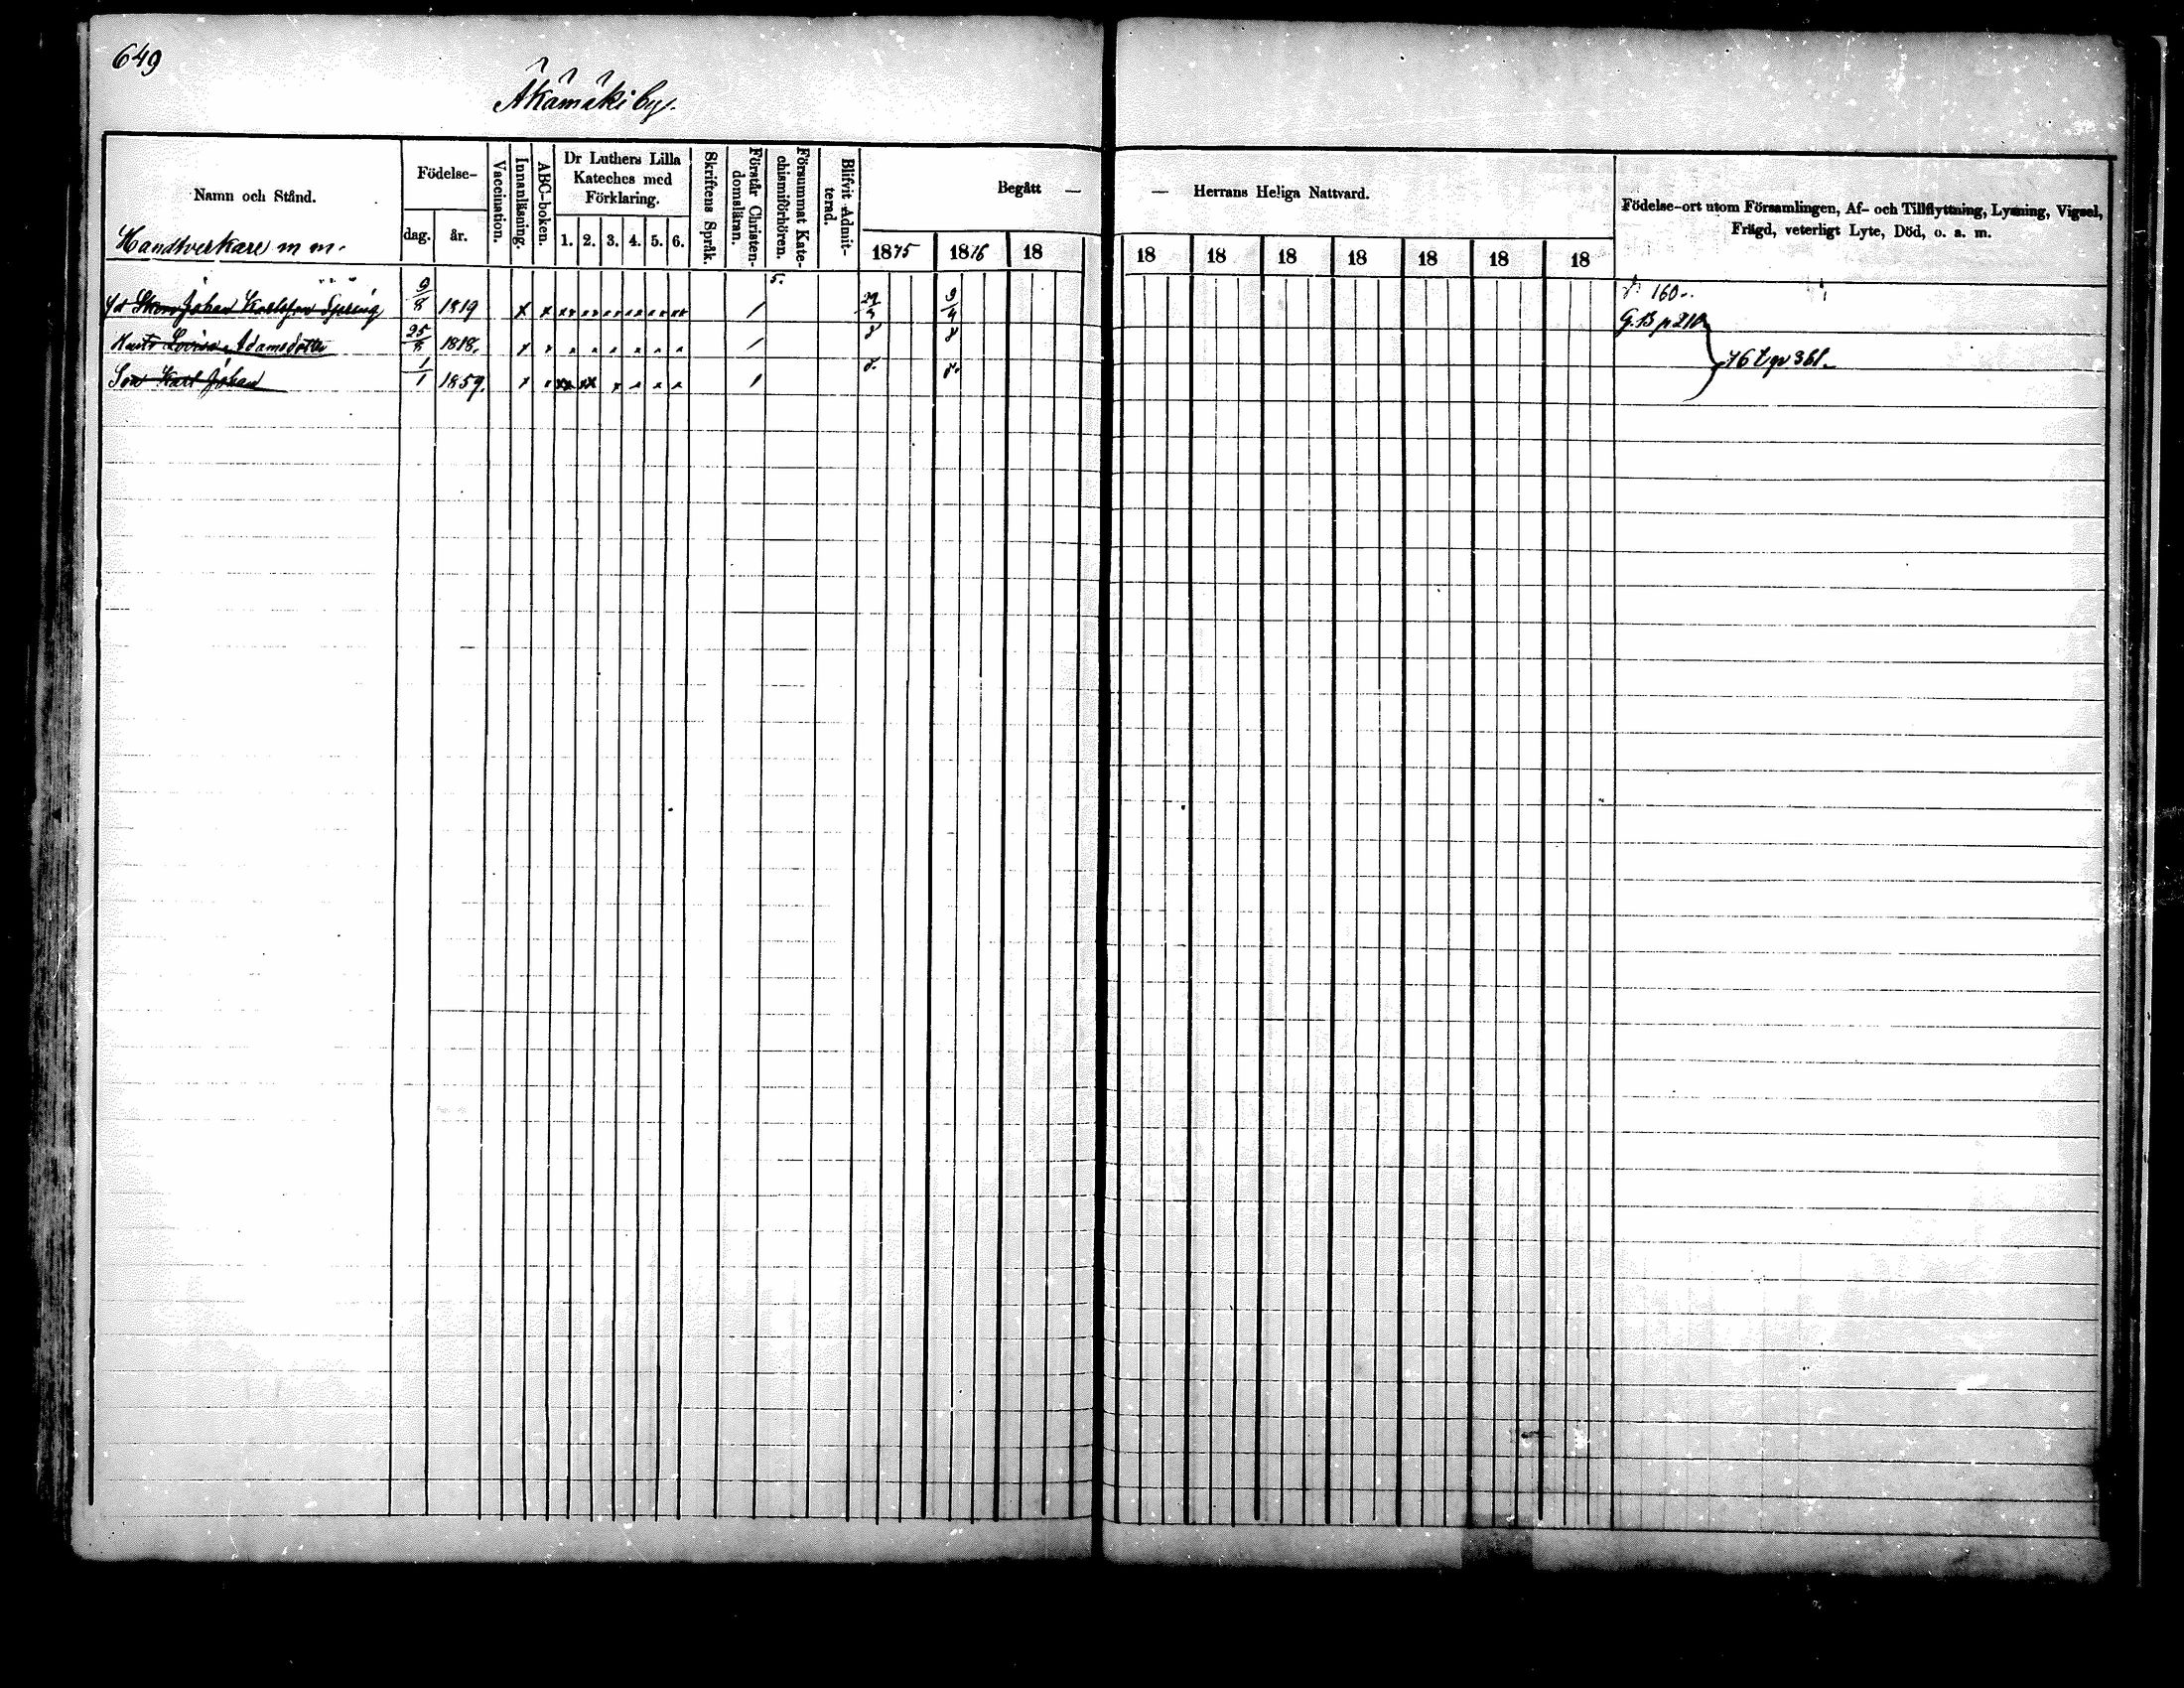 649
Äkämäki by.
Namn och Stånd.
Handtverkare m m.
Födelse-
dag. år.
Vaccination.
Innanläsning.
ABC-boken.
Dr Luthers Lilla
Kateches med
Förklaring.
1. 2. 3. 4. 5. 6.
Skriftens Språk.
Förstår Christen-
domsläran.
Försummat Kate-
chismiförhören.
Blifvit Admit-
terad.
Begått —
1875 1876 18
— Herrans Heliga Nattvard.
18 18 18 18 18 18 18
Födelse-ort utom Församlingen, Af- och Tillflyttning, Lysning, Vigsel,
Frägd, veterligt Lyte, Död, o. a. m.
5.
Johan Karlsson Spring 9/8 1819 x x 9/4
160.
G.B p 210
Hustr Lovisa Adamsdotter 25/8 1818.
76 t. p 361.
Son Karl Johan 1/1 1859.